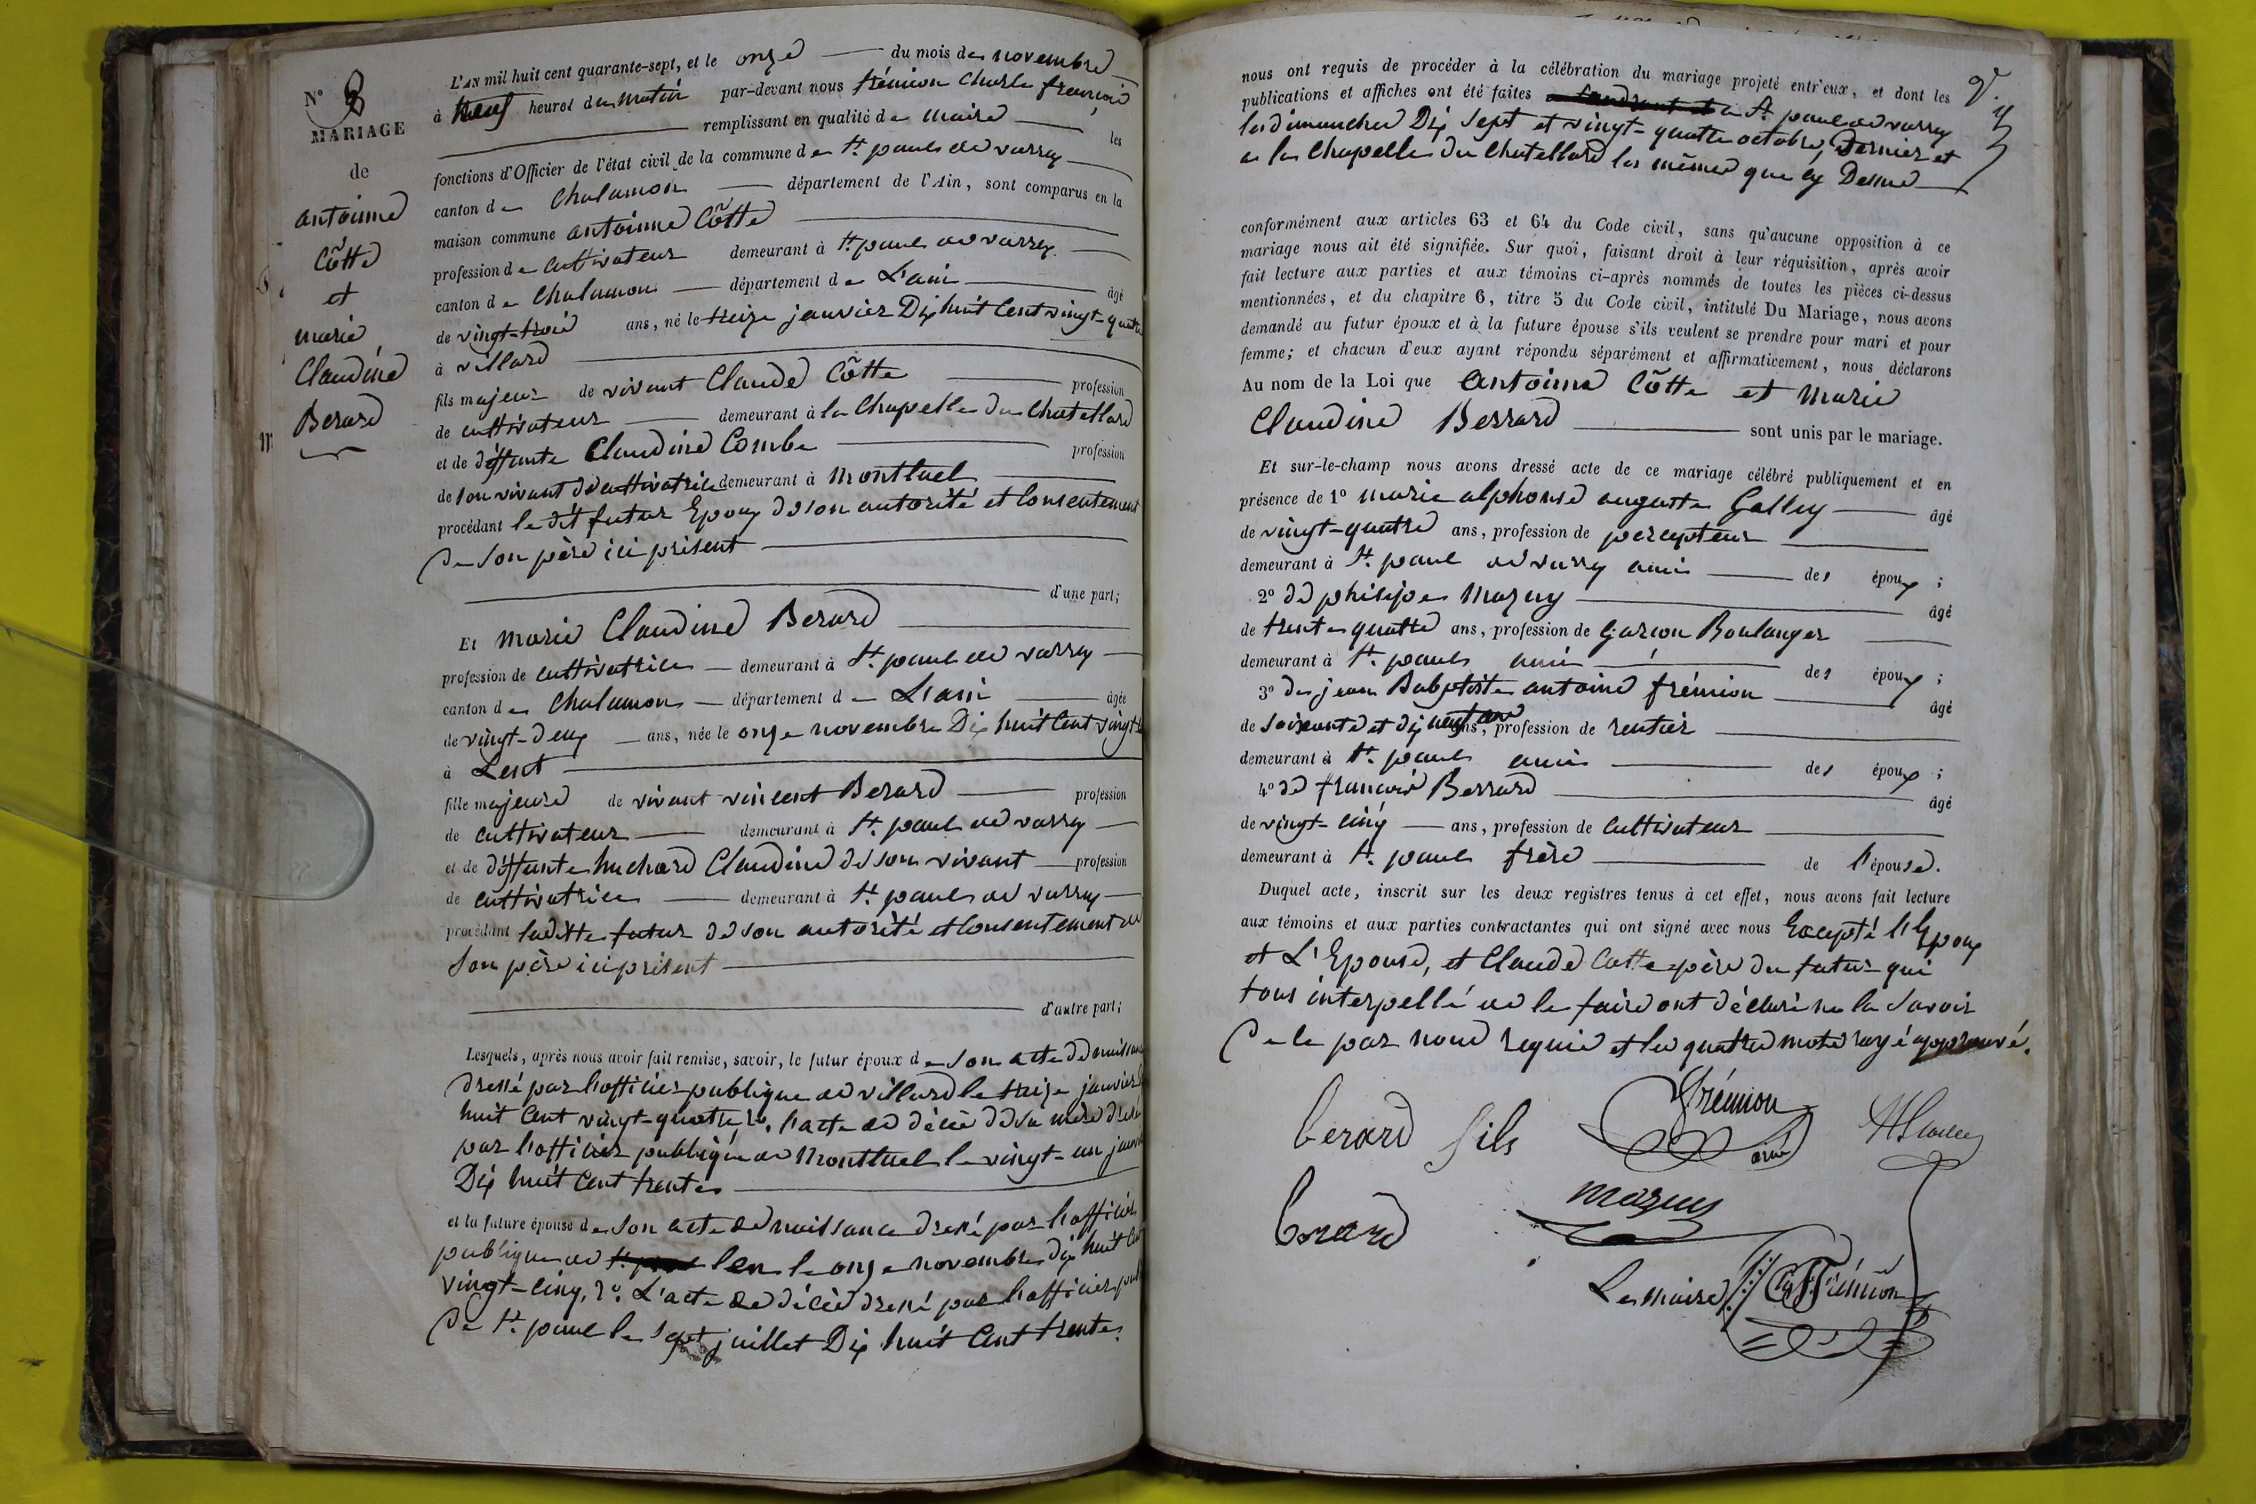 N° 8
MARIAGE
de
antoinne
Côtte
et
marie
Claudine
Berard
L'AN mil huit cent quarante-sept, et le onze du mois de novembre
à neuf heures du matin par-devant nous frémion Charle françois
remplissant en qualité de maire les
fonctions d'Officier de l'état civil de la commune de St. paul de varax
canton de Chalamon département de l'Ain, sont comparus en la
maison commune antoinne Côtte
profession de cultivateur demeurant à St. paul de varax
canton de Chalamon département de L'ain âgé
de vingt-trois ans, né le treize janvier Dix huit Cent vingt-quatre
à villard
fils majeur de vivant Claude Côtte profession
de cultivateur demeurant à la Chapelle du Chatellard
et de déffunte Claudine Combe profession
de son vivant de cultivatrice demeurant à Montluel
procédant le dit futur Epoux de son autorité et Consentement
De son père ici présent
d'une part;
Et Marie Claudine Berard
profession de cultivatrice demeurant à St. paul de varax
canton de Chalamon département de L'ain âgée
de vingt-deux ans, née le onze novembre Dix huit Cent vingt
à Lent
fille majeure de vivant vincent Berard profession
de cultivateur demeurant à St. paul de varax
et de déffunte huchard Claudine de son vivant profession
de cultivatrice demeurant à St. paul de varax
procédant laditte futur de son autorité et Consentement de
son père ici présent
d'autre part;
Lesquels, après nous avoir fait remise, savoir, le futur époux de son acte de naissance
dressé par l'officier publique de villard le treize janvier
huit Cent vingt-quatre, 2°. l'acte de décès de sa mère dressé
par l'officier publique de Montluel le vingt-un janvier
Dix huit Cent trente
et la future épouse de son acte de naissance dressé par l'officier
publique de St. paul len le onze novembre dix huit Cent
vingt-cinq, 2°. L'acte de décès dressé par l'officier pub
De St. paul le sept juillet Dix huit Cent trente.
nous ont requis de procéder à la célébration du mariage projeté entr'eux, et dont les
publications et affiches ont été faites à St. paul de varax
les dimanches Dix sept et vingt-quatre octobre, Dernier et
a la Chapelle du Chatellard les mêmes que cy Dessus
conformément aux articles 63 et 64 du Code civil, sans qu'aucune opposition à ce
mariage nous ait été signifiée. Sur quoi, faisant droit à leur réquisition, après avoir
fait lecture aux parties et aux témoins ci-après nommés de toutes les pièces ci-dessus
mentionnées, et du chapitre 6, titre 5 du Code civil, intitulé Du Mariage, nous avons
demandé au futur époux et à la future épouse s'ils veulent se prendre pour mari et pour
femme; et chacun d'eux ayant répondu séparément et affirmativement, nous déclarons
Au nom de la Loi que Antoinne Côtte et Marie
Claudine Berrard sont unis par le mariage.
Et sur-le-champ nous avons dressé acte de ce mariage célébré publiquement et en
présence de 1° marie alphonse auguste Galley âgé
de vingt-quatre ans, profession de percepteur
demeurant à St. paul de varax ami des époux;
2° de philipe Mazuy âgé
de trente quatre ans, profession de garçon Boulanger
demeurant à St. paul ami des époux;
3° de jean Babptiste antoine frémion âgé
de soixante et dix neuf ans ans, profession de rentier
demeurant à St. paul ami des époux;
4° de françois Berrard âgé
de vingt-cinq ans, profession de cultivateur
demeurant à St. paul frère de l'épouse.
Duquel acte, inscrit sur les deux registres tenus à cet effet, nous avons fait lecture
aux témoins et aux parties contractantes qui ont signé avec nous Excepté l'Epoux
et L'Epouse, et Claude Cotte père du futur qui
tous interpellé de le faire ont déclaré ne la savoir
De le par nous requis et les quatre mots rayé approuvé.
berard fils
frémion
ainé
berard
mazuy
Le maire
Ch F frémion